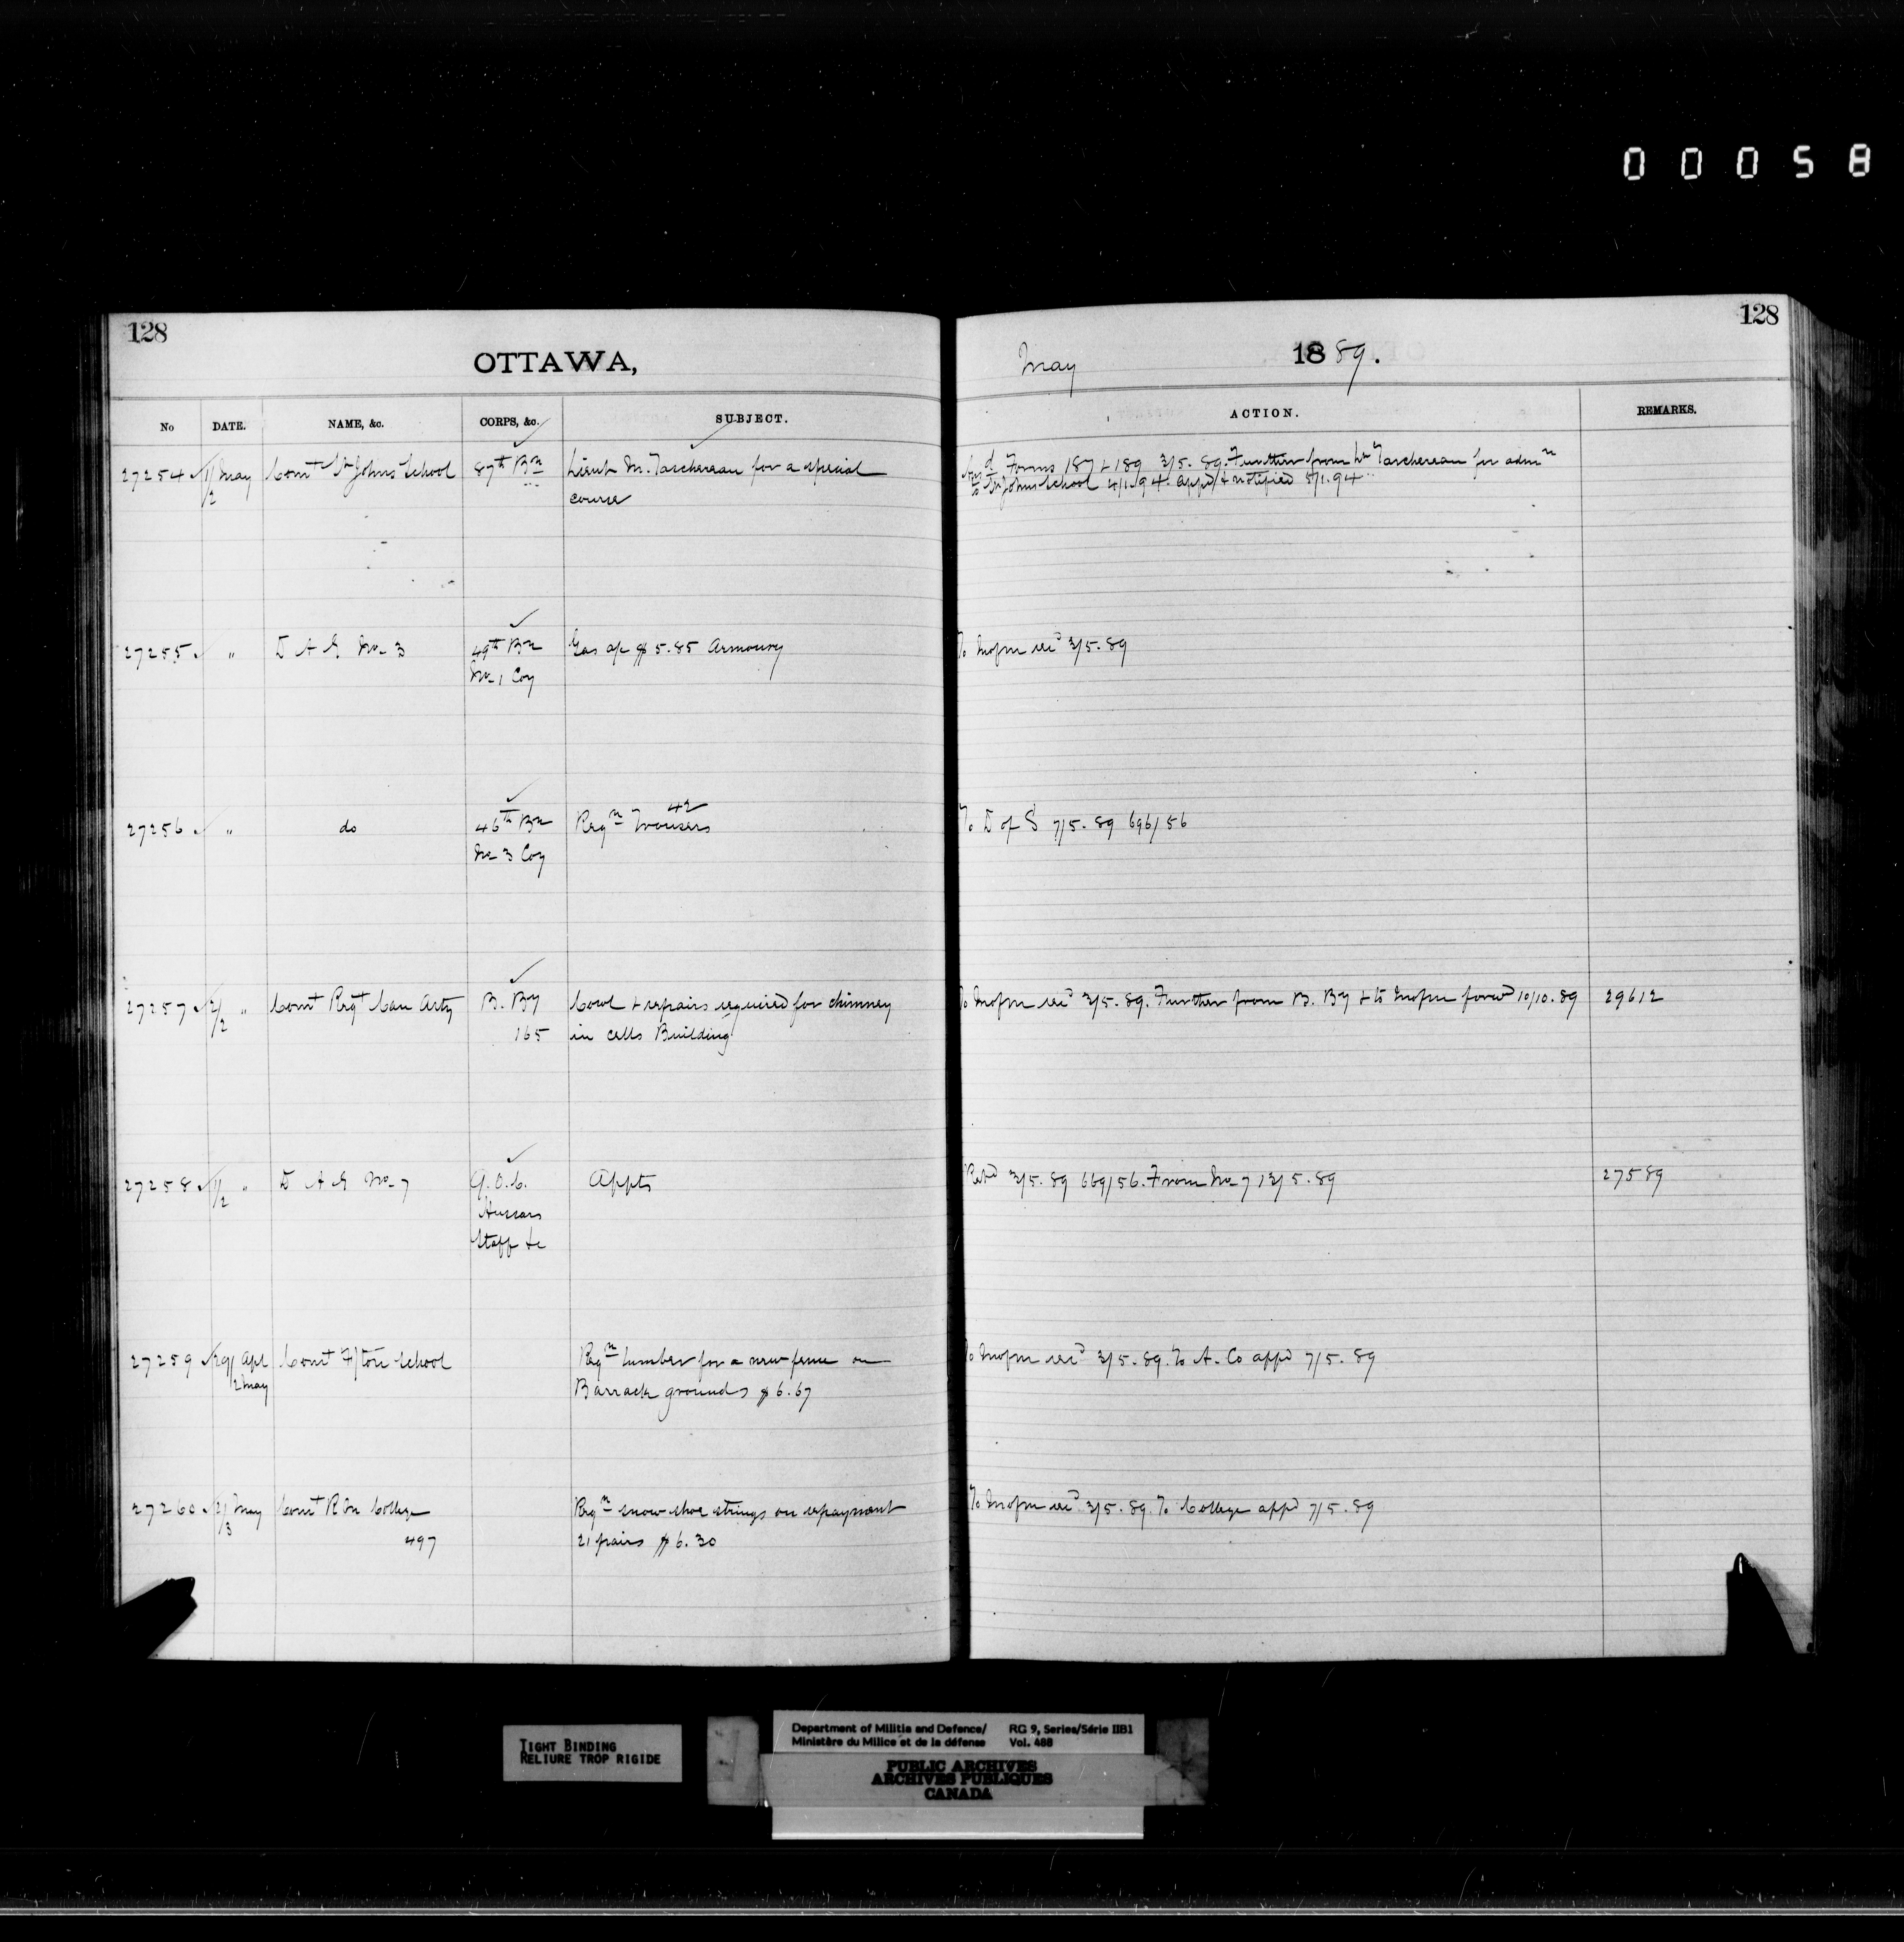 00058
128
OTTAWA,
No DATE. NAME, &c. CORPS, &c. SUBJECT.
27254 1/2 May Comt St Johns School 87th Bn Lieut M. Taschereau for a special
course
27255 " D A G No 3 49th Bn Gas a/c $5.85 Armoury
No 1 Coy
27256 " do 46th Bn Reqn Trousers 42
No 3 Coy
27257 2/2 " Comt Regt Can Arty B. By Cowl & repairs required for chimney
165 in cells Building
27258 1/2 " D A G No 7 Q.O.C. Appts
Hussars
Staff &c
27259 29/ Apl Comt F/ton School Reqn Lumber for a new fence on
2 May Barrack grounds $6.67
27260 2/3 May Comt R M College Reqn snow shoe strings on repayment
497 21 pairs $6.30
128
May 1889.
ACTION. REMARKS.
Forms 187 & 189 3/5.89. Further from Lt Taschereau for admn
to St Johns School 4/1.94. appd & notified 5/1.94
To 3/5.89
To D of S 7/5.89 696/56
To 3/5.89. Further from B. By & to forwd 10/10.89 29612
Retd 3/5.89 669/56. From No 7 13/5.89 27589
To 3/5.89. To A. Co appd 7/5.89
To 3/5.89. To College appd 7/5.89
TIGHT BINDING
RELIURE TROP RIGIDE
Department of Militia and Defence/ RG 9, Series/Série IIB1
Ministère du Milice et de la défense Vol. 488
PUBLIC ARCHIVES
ARCHIVES PUBLIQUES
CANADA